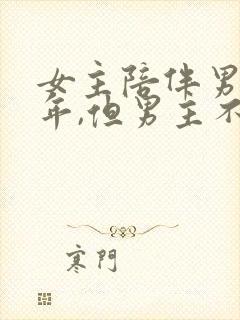 女主陪伴男
年,但男主不
寒門